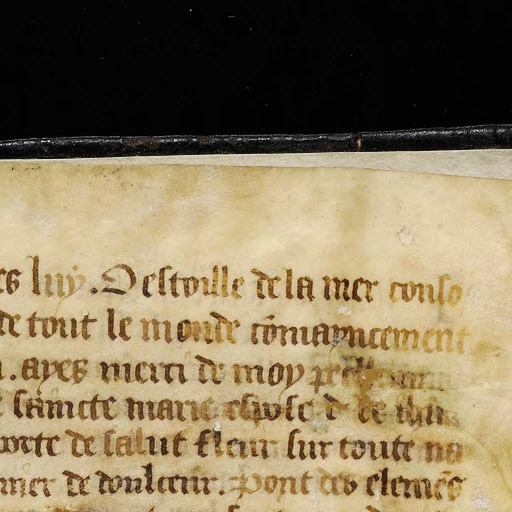 luy. O estoille de la mer conso
de tout le monde cōmancement
. ayes merci de moy
saincte marie espose
porte de salut fleur sur toute na
mer de doulceur. Pont des elemēs